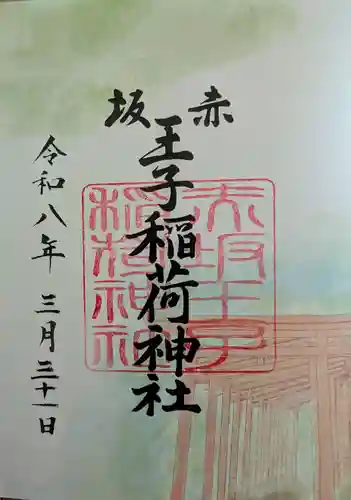 赤坂
王子稲荷神社
令和八年 三月三十一日
赤坂王子
稲荷神社